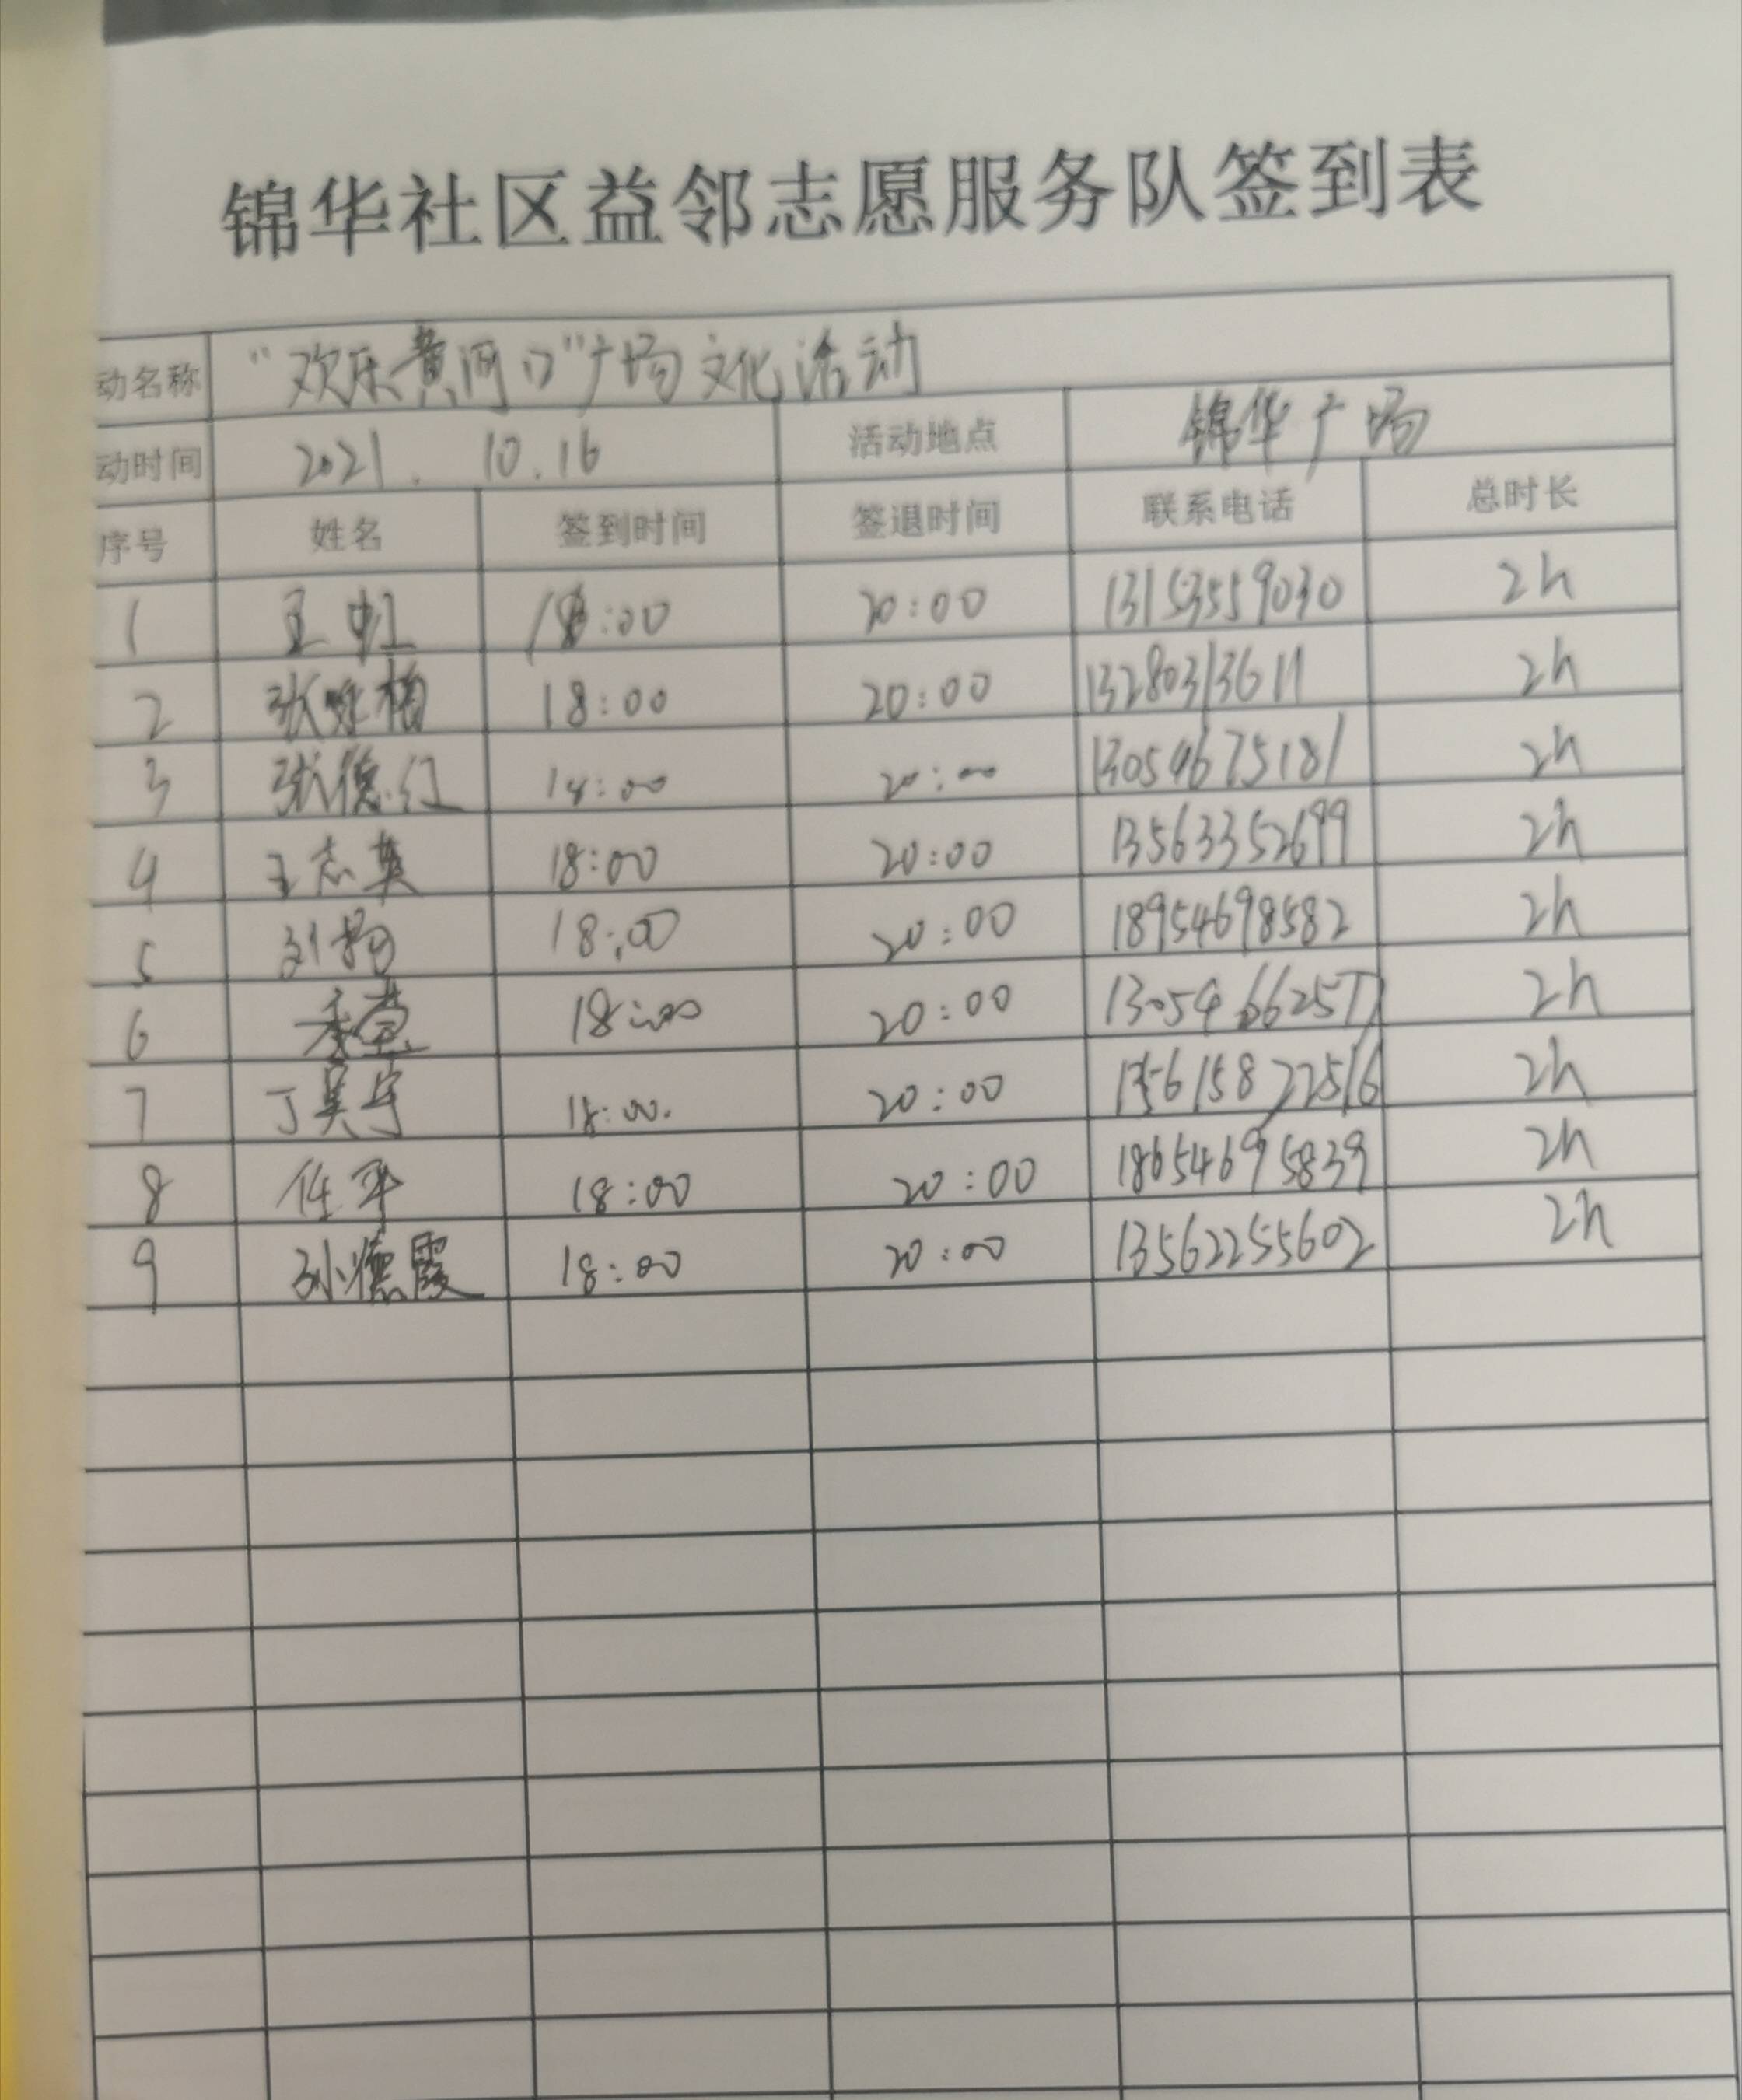 锦华社区益邻志愿服务队签到表
动名称 “欢乐黄河口”广场文化活动
动时间 2021. 10.16 活动地点 锦华广场
序号 姓名 签到时间 签退时间 联系电话 总时长
1 王虹 18:00 20:00 13153559030 2h
2 张 梅 18:00 20:00 13280313611 2h
3 张德红 18:00 20:00 13054675181 2h
4 王志英 18:00 20:00 13563352699 2h
5 刘 18:00 20:00 18954698582 2h
6 18:00 20:00 2h
7 丁昊宇 18:00. 20:00 2h
8 任平 18:00 20:00 18654695839 2h
9 孙德霞 18:00 20:00 13562255602 2h